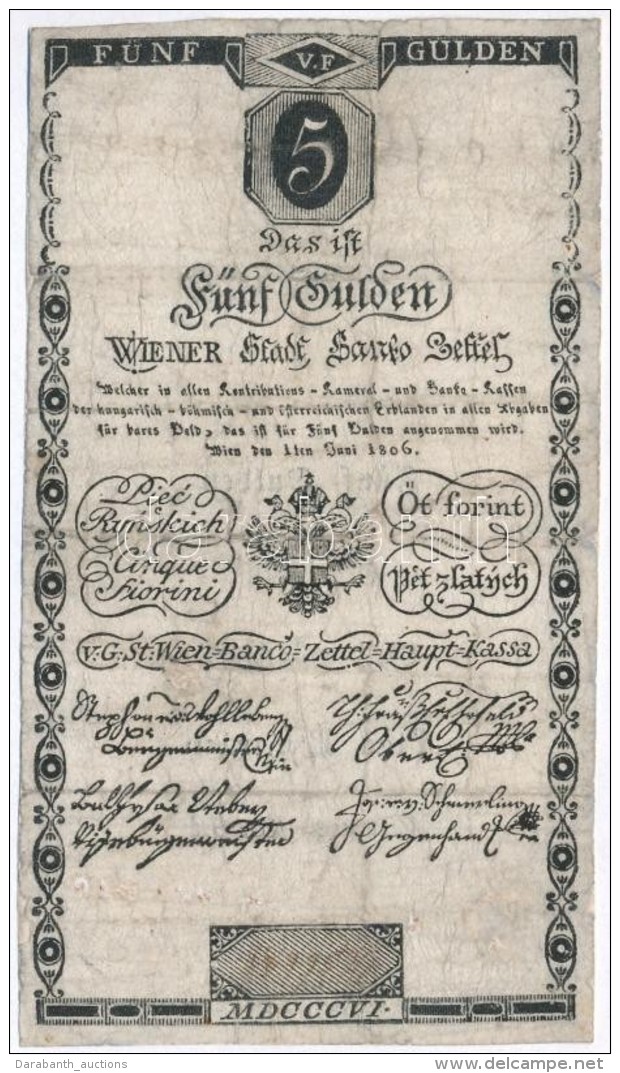 FÜNF V.F GULDEN
5
Das ist
Fünf Gulden
WIENER Stadt Banko Zettel
Welcher in allen Kontributions - Kameral - und Banko - Kassen
der hungarisch - böhmisch - und österreichischen Erblanden in allen Abgaben
für bares Geld, das ist für Fünf Gulden angenommen wird.
Wien den 1ten Juni 1806.
Pięć
Ryńskich
Öt forint
Cinque
Fiorini
Pět zlatých
v: G: St: Wien=Banco=Zettel=Haupt=Kassa
Stephan v. Wohlleben
Bürgermeister
Obere
Balthasar Weber
Vizebürgermeister
Schmerling
Gegenhand
MDCCCVI.
darabanth.com
Darabanth_auctions
delcampe.net